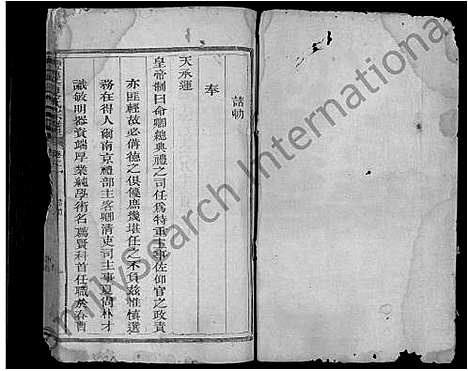 誥勅
奉
天承運
皇帝制曰命卿總典禮之司任爲特重主事佐仰官之政責
亦匪輕故必儁德之俊庶幾堪任之不負兹惟慎選
務在得人爾南京禮部主客卿清吏司主事夏尚朴才
識敏明器資端厚業純學術名薦賢科首任職於春曹
FamilySearch International